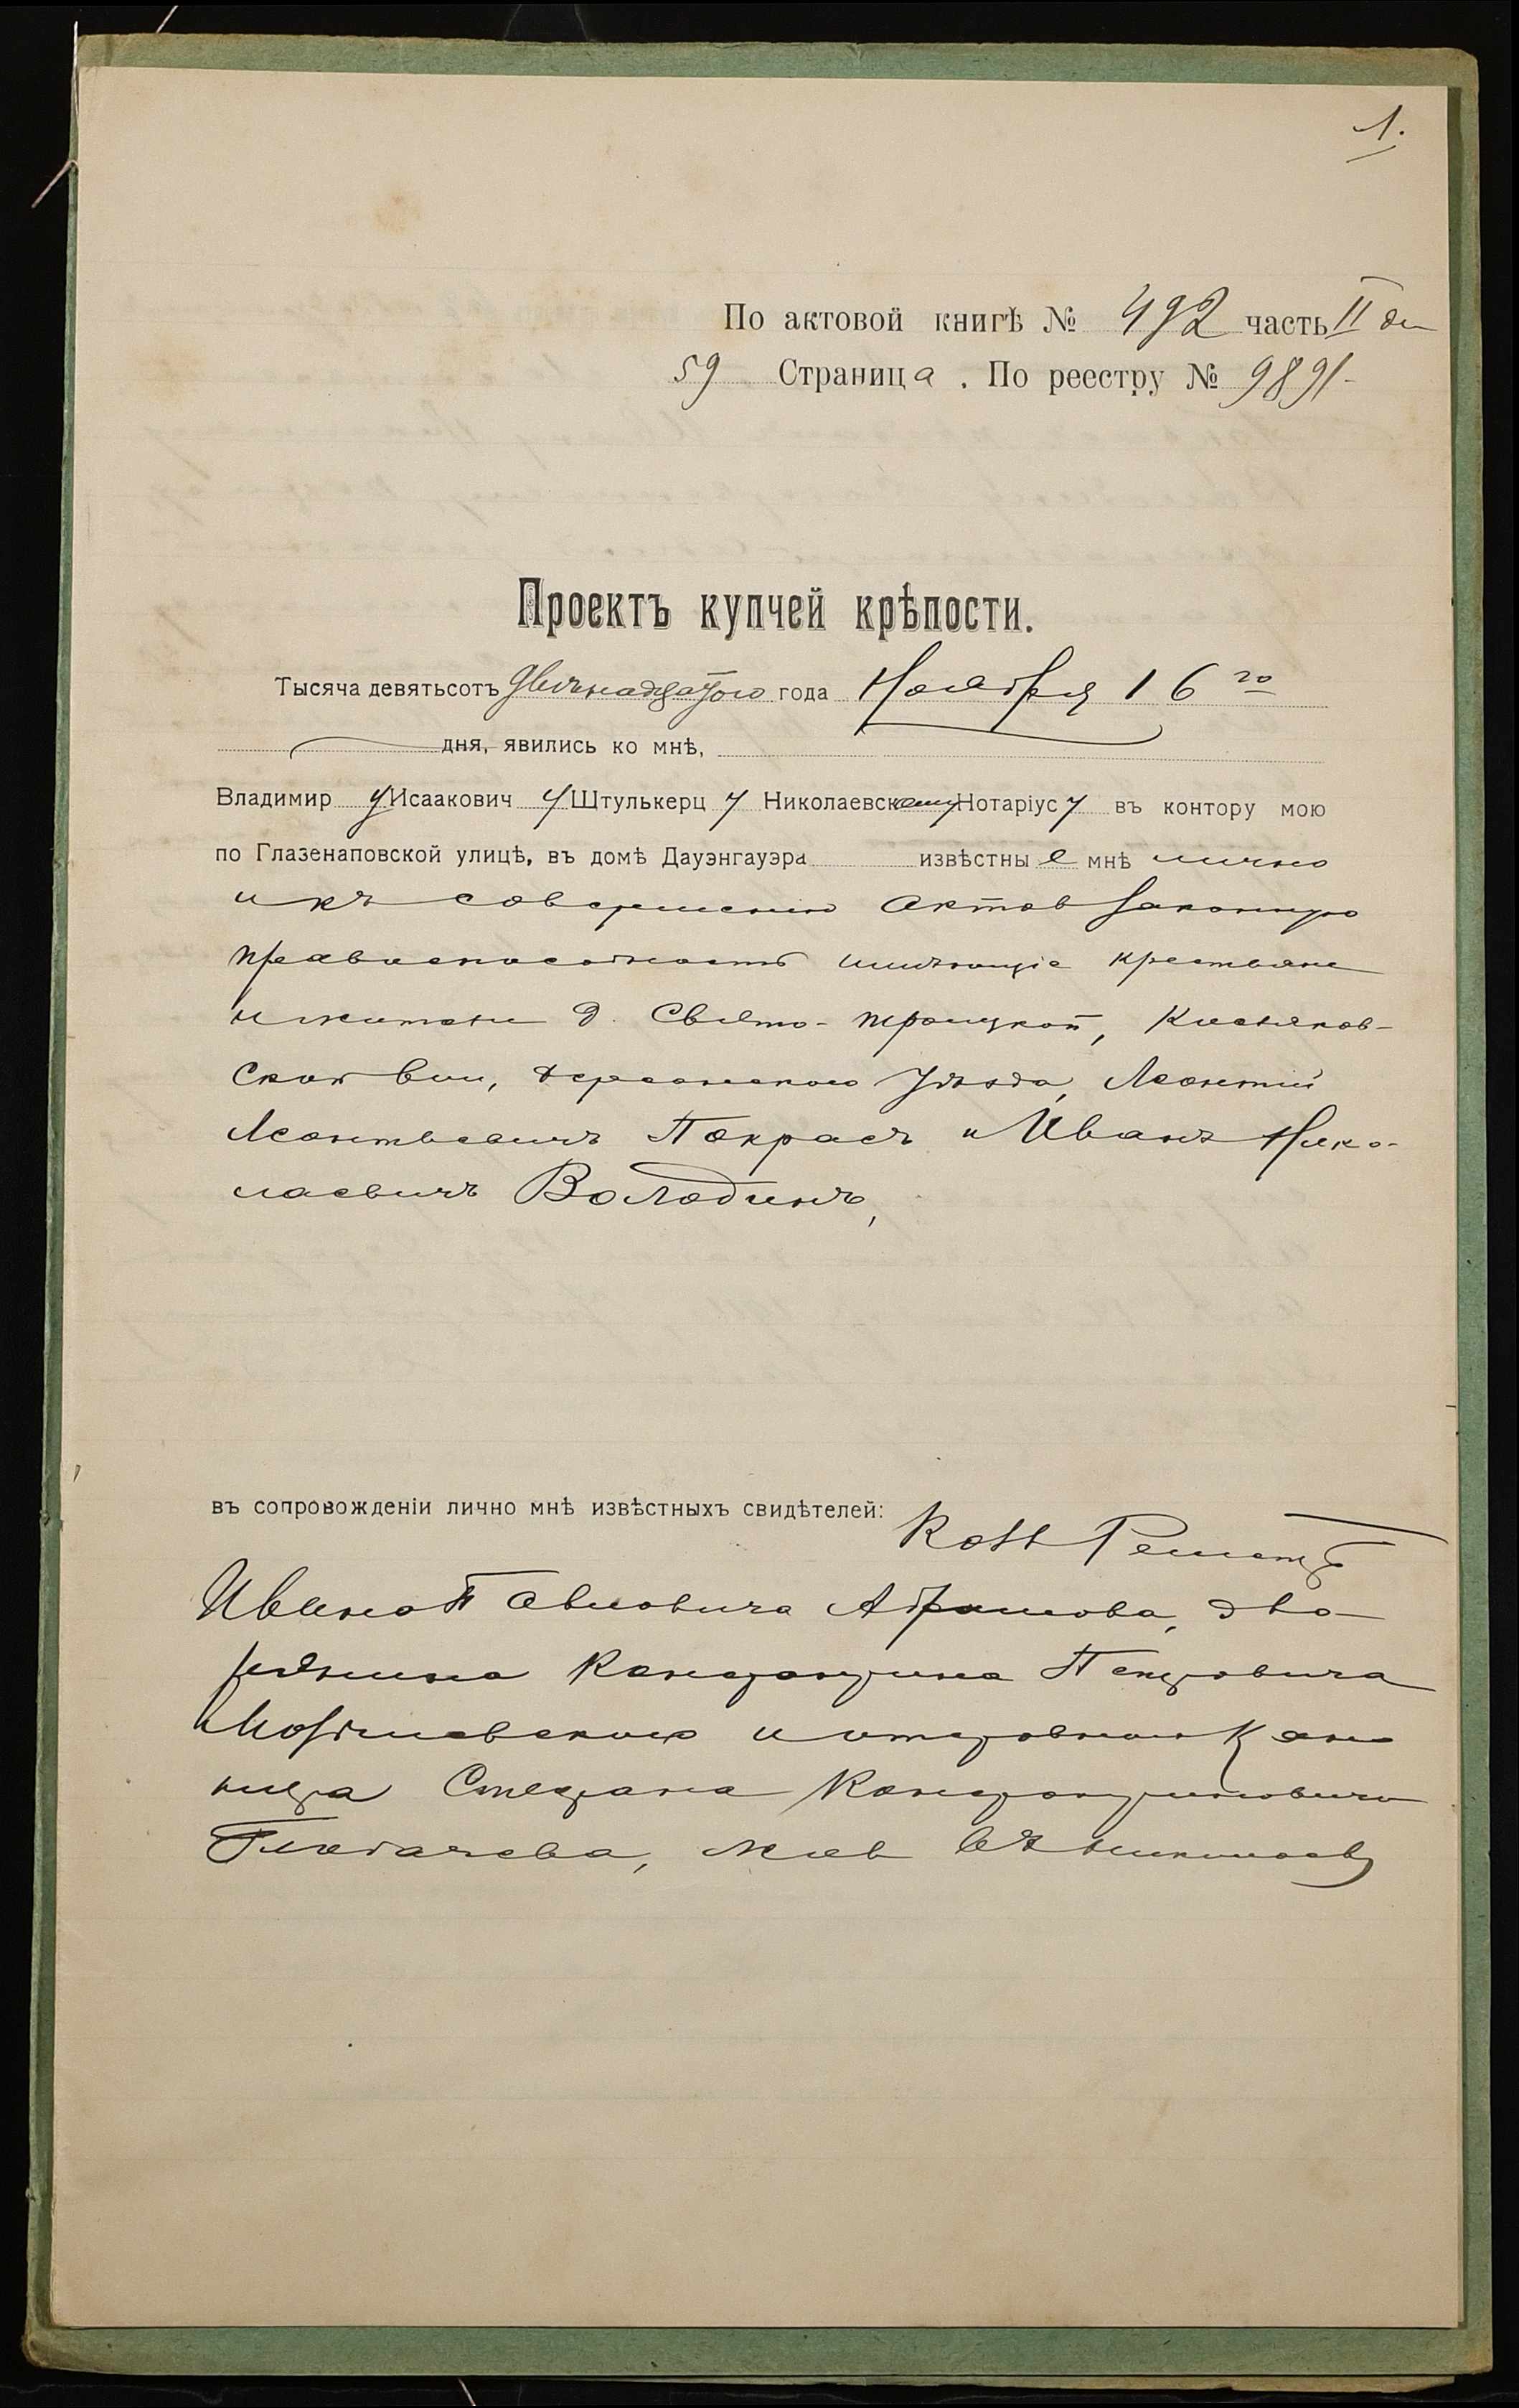 1.
По актовой книгѣ № 492 часть II
59 Страница. По реестру № 9891
Проектъ купчей крѣпости.
Тысяча девятьсотъ двѣнадцатого года Ноября 16го
дня, явились ко мнѣ,
Владимиру Исааковичу Штулькерцу Николаевскому Нотаріусу въ контору мою
по Глазенаповской улицѣ, въ домѣ Дауэнгауэра извѣстные мнѣ лично
и къ совершенію актов законную
правоспособность имѣющіе крестьяне
и жители д. Свято-Троицкой, Кисляков-
ской вол., Херсонскаго уѣзда, Леонтій
Леонтьевичъ Покрасъ и Иванъ Нико-
лаевичъ Володинъ,
въ сопровожденіи лично мнѣ извѣстныхъ свидѣтелей:
Ивана Павловича Абрамова, дво-
рянина Константина Петровича
и отставного
Стефана Константиновича
жив. въ Николаевѣ